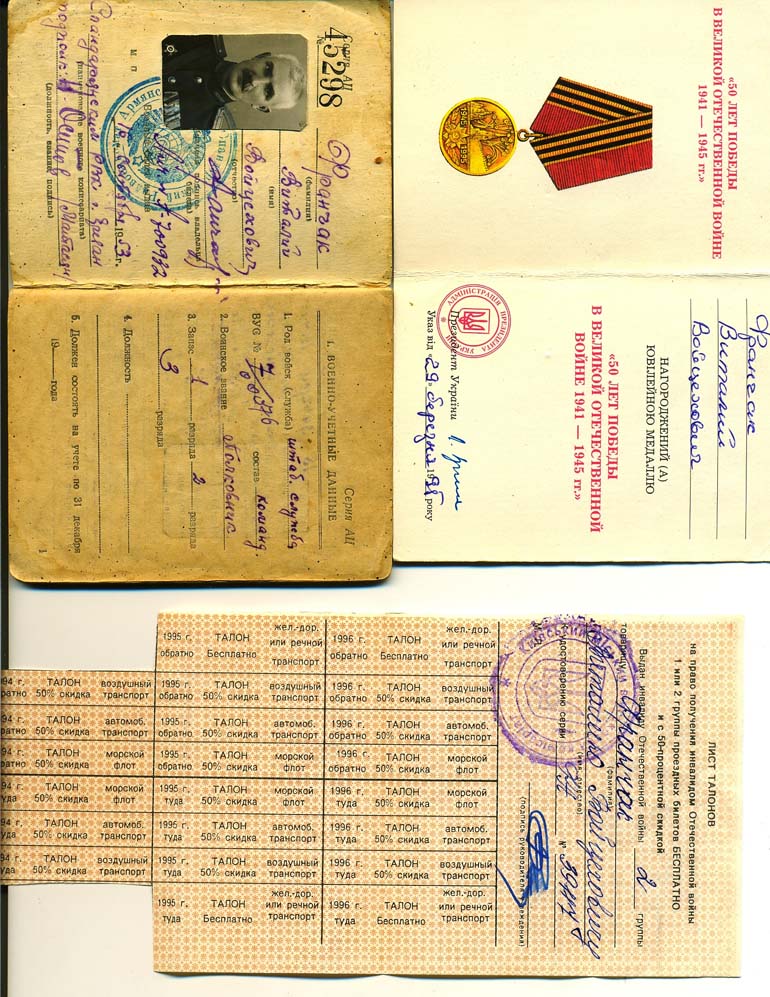 Серия АЦ
№ 45298
Франчак
(фамилия)
Виталий
(имя)
Войцехович
(отчество)
М. П.
1953 г.
(наименование военного комиссариата)
(должность, звание, подпись)
Серия АЦ
I. ВОЕННО-УЧЕТНЫЕ ДАННЫЕ
1. Род войск (служба) штаб. служба
ВУС № состав команд.
2. Воинское звание Полковник
3. Запас 1 разряда 2
разряда
3 разряда
4. Должность
5. Должен состоять на учете по 31 декабря
19 года
1
«50 ЛЕТ ПОБЕДЫ
В ВЕЛИКОЙ ОТЕЧЕСТВЕННОЙ ВОЙНЕ
1941 — 1945 гг.»
1945 1995
Франчак
Виталий
Войцехович
НАГОРОДЖЕНИЙ (А)
ЮВІЛЕЙНОЮ МЕДАЛЛЮ
«50 ЛЕТ ПОБЕДЫ
В ВЕЛИКОЙ ОТЕЧЕСТВЕННОЙ
ВОЙНЕ 1941 — 1945 гг.»
АДМІНІСТРАЦІЯ ПРЕЗИДЕНТА УКРАЇНИ
Президент України
Указ від «29» березня 1995 року
ЛИСТ ТАЛОНОВ
на право получения инвалидом Отечественной войны
1 или 2 группы проездных билетов БЕСПЛАТНО
и с 50-процентной скидкой
Выдан инвалиду Отечественной войны 2 группы
товарищу Франчак
(фамилия)
Виталию Войцеховичу
(имя, отчество)
к удостоверению серии №
(подпись руководителя учреждения)
1995 г. ТАЛОН жел.-дор. или речной
обратно Бесплатно транспорт
1996 г. ТАЛОН жел.-дор. или речной
обратно Бесплатно транспорт
94 г. ТАЛОН воздушный
братно 50% скидка транспорт
1995 г. ТАЛОН воздушный
обратно 50% скидка транспорт
1996 г. ТАЛОН воздушный
обратно 50% скидка транспорт
94 г. ТАЛОН автомоб.
братно 50% скидка транспорт
1995 г. ТАЛОН автомоб.
обратно 50% скидка транспорт
1996 г. ТАЛОН автомоб.
обратно 50% скидка транспорт
94 г. ТАЛОН морской
братно 50% скидка флот
1995 г. ТАЛОН морской
обратно 50% скидка флот
1996 г. ТАЛОН морской
обратно 50% скидка флот
94 г. ТАЛОН морской
туда 50% скидка флот
1995 г. ТАЛОН морской
туда 50% скидка флот
1996 г. ТАЛОН морской
туда 50% скидка флот
94 г. ТАЛОН автомоб.
туда 50% скидка транспорт
1995 г. ТАЛОН автомоб.
туда 50% скидка транспорт
1996 г. ТАЛОН автомоб.
туда 50% скидка транспорт
94 г. ТАЛОН воздушный
туда 50% скидка транспорт
1995 г. ТАЛОН воздушный
туда 50% скидка транспорт
1996 г. ТАЛОН воздушный
туда 50% скидка транспорт
1995 г. ТАЛОН жел.-дор. или речной
туда Бесплатно транспорт
1996 г. ТАЛОН жел.-дор. или речной
туда Бесплатно транспорт